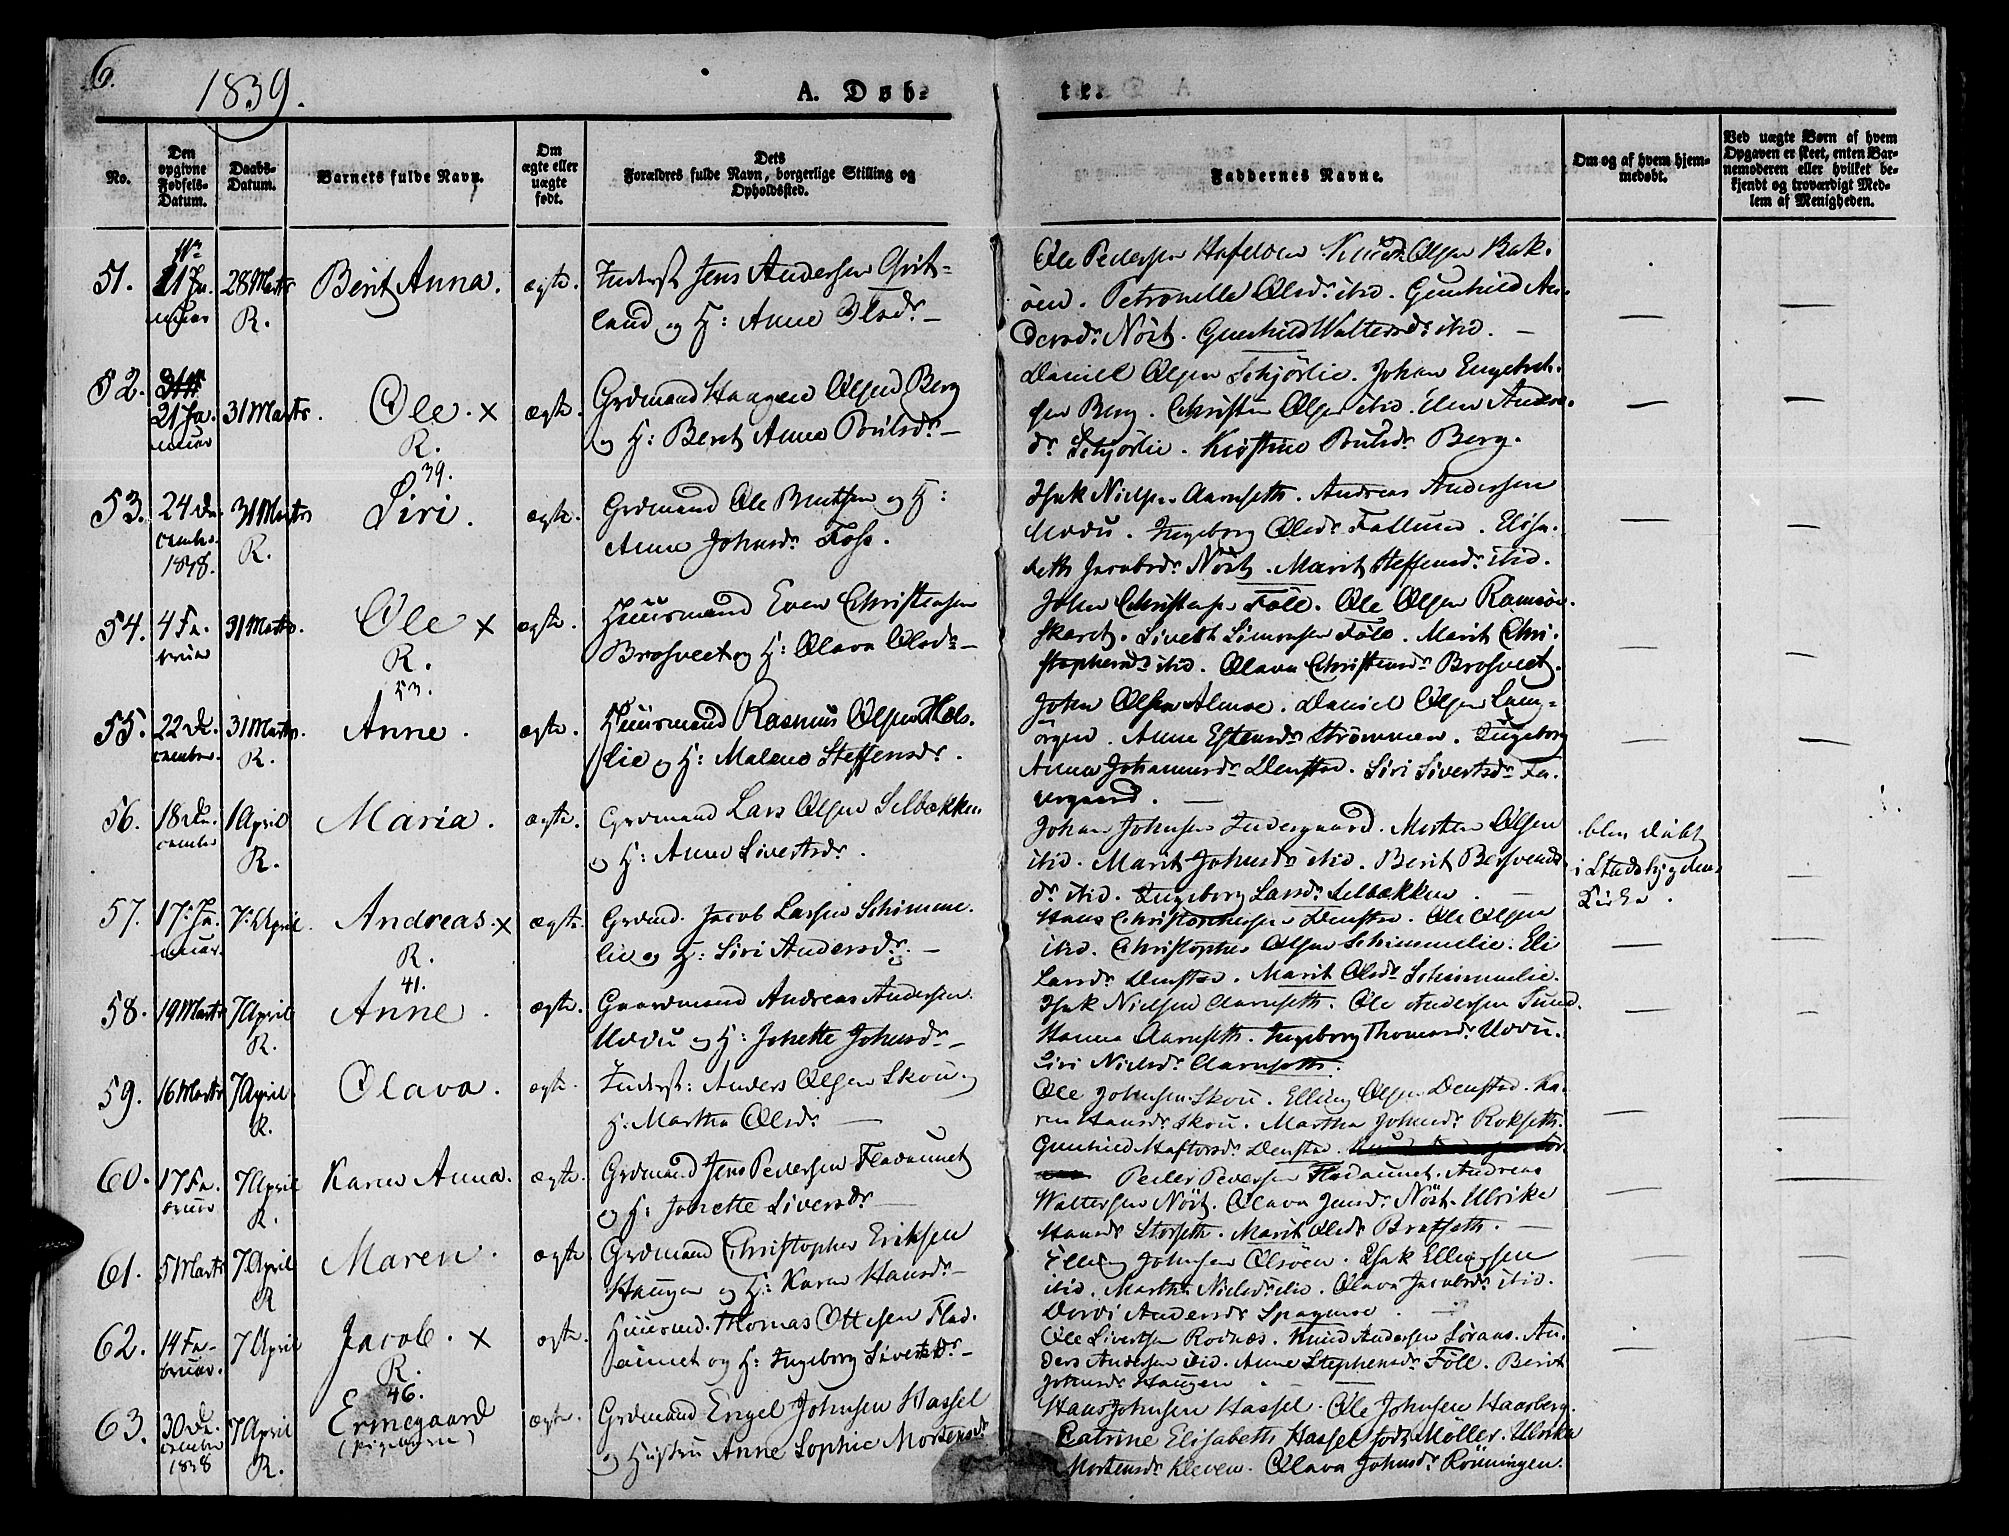 6.
1839.
A. Døb-
te.
No.
Den opgivne Fødsels-Datum.
Daabs-Datum.
Barnets fulde Navn.
Om ægte eller uægte født.
Dets Forældres fulde Navn, borgerlige Stilling og Opholdssted.
Faddernes Navne.
Om og af hvem hjemmedøbt.
Ved uægte Børn af hvem Opgaven er skeet, enten Barnemoderen eller hvilket bekjendt og troværdigt Medlem af Menigheden.
51. 11 Januar 28 Marts R. Berit Anna. ægte. Inderst Jens Andersen Grit-
land og H: Anne Olsdr. —
Ole Pedersen Knud Olsen Bak-
öen. Petronelle Olsdr. ibid. Gunhild An-
dersdr. Nöst. Gunhild Waltersdr. ibid. —
52. 21 Januar 31 Marts. Ole. × R. 39. ægte. Grdmand Haagen Olsen Berg
og H: Berit Anne Poulsdr. —
Daniel Olsen Schjörlie. Johan Engebret-
sen Berg. Christen Olsen ibid. Elen Anders-
dr. Schjörlie. Kirstine Poulsdr. Berg.
53. 24 December 1838. 31 Marts R. Siri. ægte. Grdmand Ole Bentsen og H:
Anne Johnsdr. Foss.
Isak Nielsen Aarnseth. Andreas Andersen
Uvdu. Ingeborg Olsdr. Follund. Elisa-
beth Jacobsdr. Nöst. Marit Steffensdr. ibid.
54. 4 Februar 31 Marts. Ole × R. 53. ægte. Huusmand Even Christensen
Brosveet og H: Olava Olsdr. —
John Christensen Föll. Ole Olsen Ramsöe-
skaret. Sivert Simonsen Föll. Marit Chri-
stophersdr. ibid. Olava Christensdr. Brosveet.
55. 22 December. 31 Marts. R. Anne. ægte. Huusmand Rasmus Olsen Hols-
lie og H: Malene Steffensdr.
John Olsen Almoe. Daniel Olsen Lang-
örgen. Anne Estensdr. Strömmen. Ingeborg
Anna Johannesdr. Denstad. Siri Sivertsdr. In-
dergaard. —
56. 18 December 1 April R. Maria. ægte. Grdmand Lars Olsen Selbækken
og H: Anne Sivertsdr.
Johan Johnsen Indergaard. Morten Olsen
ibid. Marit Johnsdr. ibid. Berit Bersvends-
dr. ibid. Ingeborg Larsdr. Selbækken. —
blev döbt
i Stadsbygdens
Kirke.
57. 17: Januar. 7: April. Andreas. × R. 41. ægte. Grdmd. Jacob Larsen Schimme-
lie og H: Siri Andersdr. —
Hans Christophersen Denstad. Ole Olsen
ibid. Christopher Olsen Schimmelie. Eli
Larsdr. Denstad. Marit Olsdr. Schimmelie.
58. 19 Marts 7 April R. Anne. ægte. Gaardmand Andreas Andersen
Uvdu og H: Johette Johnsdr. —
Isak Nielsen Aarnseth. Ole Andersen Sund.
Hanna Aarnseth. Ingeborg Thomasdr. Uvdu.
Siri Nielsdr. Aarnseth.
59. 16 Marts 7 April R. Olava. ægte. Inderst: Anders Olsen Skou og
H: Martha Olsdr. —
Ole Johnsen Skou. Elling Olsen Denstad. Ka-
ren Hansdr. Skou. Martha Johnsdr. Rokseth.
Gunhild Haftorsdr. Denstad.
60. 17 Februar 7 April R. Karen Anna. ægte. Grdmand Jens Pedersen Fladaunet
og H: Jonette Siversdr. —
Peder Pedersen Fladaunet. Andreas
Waltersen Nöst. Olava Jensdr. Nöst. Ulrike
Hansdr. Storseth. Marit Olsdr. Bratseth. —
61. 5 Marts 7 April R Maren. ægte Grdmand Christopher Eriksen
Haugen og H: Karen Hansdr. —
Elling Johnsen Olsöen. Isak Ellingsen
ibid. Martha Nielsdr. ibid. Olava Jacobsdr. ibid.
Dordi Andersdr. Spagmoe. —
62. 14 Februar. 7 April Jacob. × R. 46. ægte. Huusmd. Thomas Ottesen Flad-
aunet og H: Ingeborg Sivertsdr. —
Ole Sivertsen Rodnæs. Knud Andersen Sörans. An-
ders Andersen ibid. Anne Stephensdr. Föll. Berit
Johnsdr. Haugen.
63. 30 December 1838 7 April R. Ermegaard (Pigebarn) ægte. Grdmand Engel Johnsen Hassel
og Hustru Anne Sophie Mortensdr.
Hans Johnsen Hassel. Ole Johnsen Haarberg.
Catrine Elisabeth Hassel födt Möller. Ulrika
Mortensdr. Kleven. Olava Johnsdr. Rönningen.